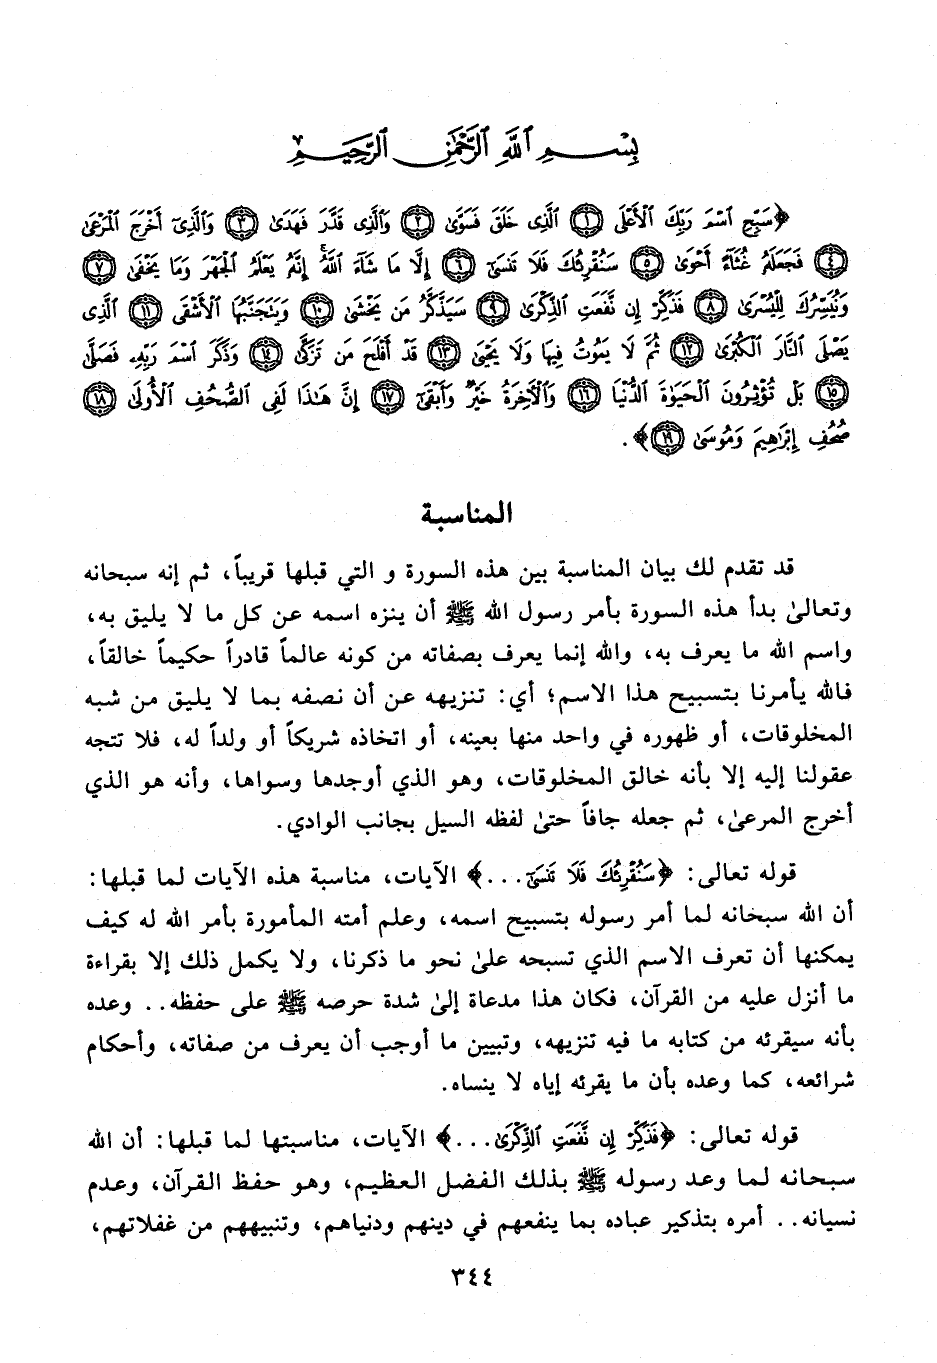 بِسْمِ ٱللَّهِ ٱلرَّحْمَٰنِ ٱلرَّحِيمِ
﴿سَبِّحِ ٱسْمَ رَبِّكَ ٱلْأَعْلَى ١ ٱلَّذِى خَلَقَ فَسَوَّىٰ ٢ وَٱلَّذِى قَدَّرَ فَهَدَىٰ ٣ وَٱلَّذِىٓ أَخْرَجَ ٱلْمَرْعَىٰ
٤ فَجَعَلَهُۥ غُثَآءً أَحْوَىٰ ٥ سَنُقْرِئُكَ فَلَا تَنسَىٰٓ ٦ إِلَّا مَا شَآءَ ٱللَّهُ ۚ إِنَّهُۥ يَعْلَمُ ٱلْجَهْرَ وَمَا يَخْفَىٰ ٧
وَنُيَسِّرُكَ لِلْيُسْرَىٰ ٨ فَذَكِّرْ إِن نَّفَعَتِ ٱلذِّكْرَىٰ ٩ سَيَذَّكَّرُ مَن يَخْشَىٰ ١٠ وَيَتَجَنَّبُهَا ٱلْأَشْقَى ١١ ٱلَّذِى
يَصْلَى ٱلنَّارَ ٱلْكُبْرَىٰ ١٢ ثُمَّ لَا يَمُوتُ فِيهَا وَلَا يَحْيَىٰ ١٣ قَدْ أَفْلَحَ مَن تَزَكَّىٰ ١٤ وَذَكَرَ ٱسْمَ رَبِّهِۦ فَصَلَّىٰ
١٥ بَلْ تُؤْثِرُونَ ٱلْحَيَوٰةَ ٱلدُّنْيَا ١٦ وَٱلْءَاخِرَةُ خَيْرٌ وَأَبْقَىٰٓ ١٧ إِنَّ هَٰذَا لَفِى ٱلصُّحُفِ ٱلْأُولَىٰ ١٨
صُحُفِ إِبْرَٰهِيمَ وَمُوسَىٰ ١٩﴾.
المناسبة
قد تقدم لك بيان المناسبة بين هذه السورة و التي قبلها قريباً، ثم إنه سبحانه
وتعالىٰ بدأ هذه السورة بأمر رسول الله ﷺ أن ينزه اسمه عن كل ما لا يليق به،
واسم الله ما يعرف به، والله إنما يعرف بصفاته من كونه عالماً قادراً حكيماً خالقاً،
فالله يأمرنا بتسبيح هذا الاسم؛ أي: تنزيهه عن أن نصفه بما لا يليق من شبه
المخلوقات، أو ظهوره في واحد منها بعينه، أو اتخاذه شريكاً أو ولداً له، فلا تتجه
عقولنا إليه إلا بأنه خالق المخلوقات، وهو الذي أوجدها وسواها، وأنه هو الذي
أخرج المرعىٰ، ثم جعله جافاً حتىٰ لفظه السيل بجانب الوادي.
قوله تعالى: ﴿سَنُقْرِئُكَ فَلَا تَنسَىٰٓ ...﴾ الآيات، مناسبة هذه الآيات لما قبلها:
أن الله سبحانه لما أمر رسوله بتسبيح اسمه، وعلم أمته المأمورة بأمر الله له كيف
يمكنها أن تعرف الاسم الذي تسبحه علىٰ نحو ما ذكرنا، ولا يكمل ذلك إلا بقراءة
ما أنزل عليه من القرآن، فكان هذا مدعاة إلىٰ شدة حرصه ﷺ على حفظه.. وعده
بأنه سيقرئه من كتابه ما فيه تنزيهه، وتبيين ما أوجب أن يعرف من صفاته، وأحكام
شرائعه، كما وعده بأن ما يقرئه إياه لا ينساه.
قوله تعالى: ﴿فَذَكِّرْ إِن نَّفَعَتِ ٱلذِّكْرَىٰ ...﴾ الآيات، مناسبتها لما قبلها: أن الله
سبحانه لما وعد رسوله ﷺ بذلك الفضل العظيم، وهو حفظ القرآن، وعدم
نسيانه.. أمره بتذكير عباده بما ينفعهم في دينهم ودنياهم، وتنبيههم من غفلاتهم،
٣٤٤